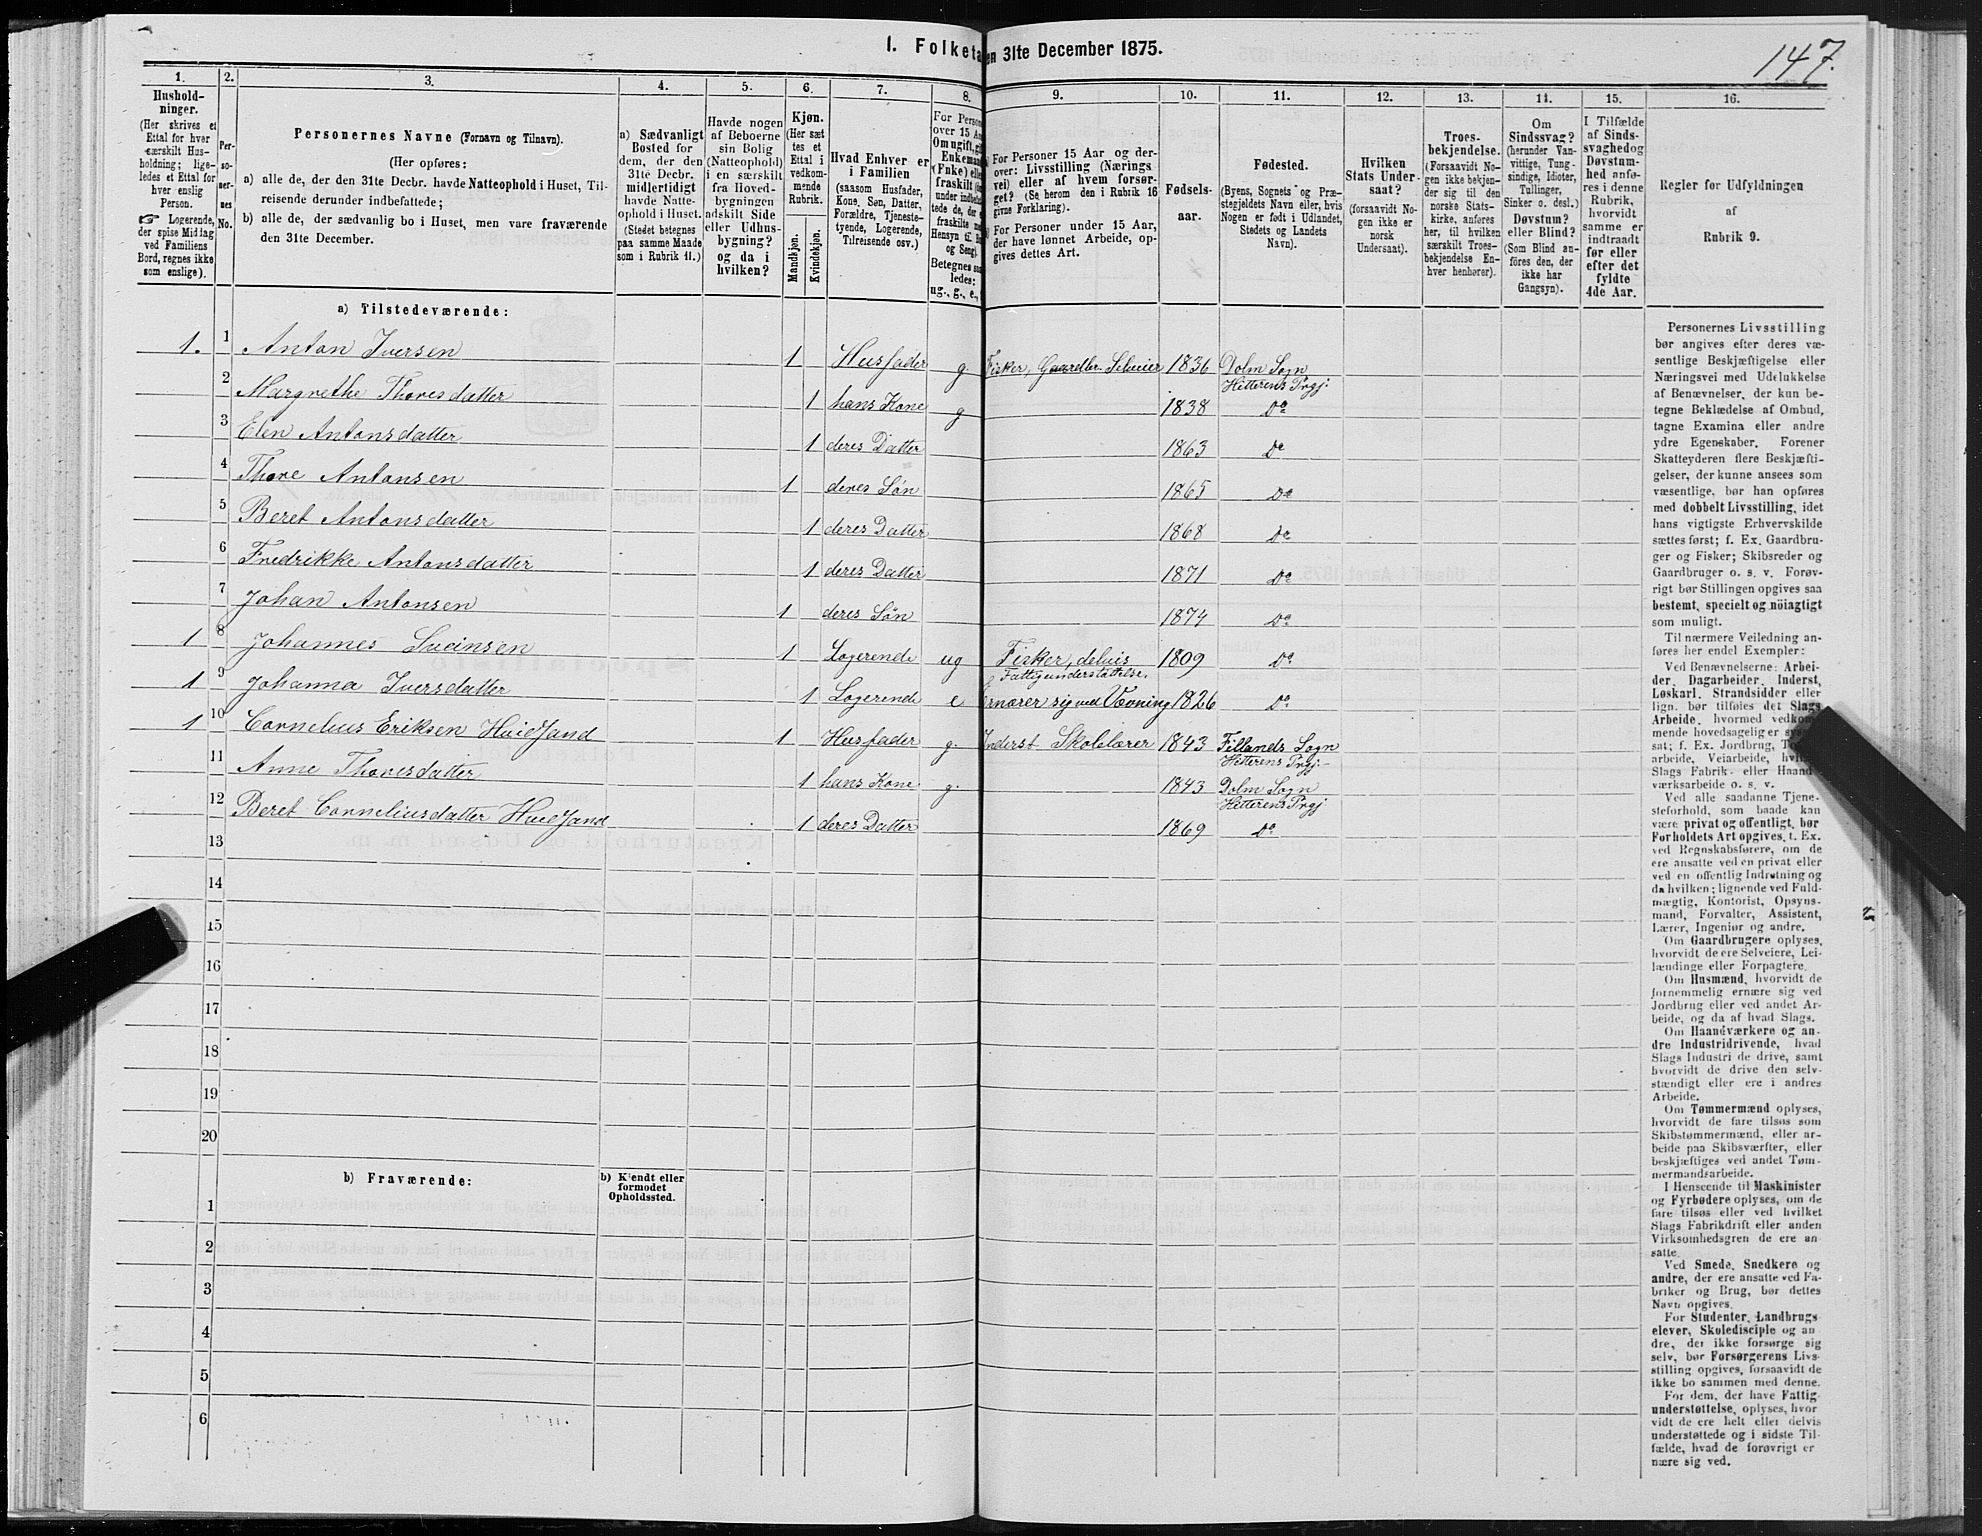 147.
I. Folketa en 31te December 1875.
1. 2. 3. 4. 5. 6. 7. 8. 9. 10. 11. 12. 13. 14. 15. 16.
Hushold-
ninger.
(Her skrives et
Ettal for hver
særskilt Hus-
holdning; lige-
ledes et Ettal for
hver enslig
Person.
☞ Logerende,
der spise Middag
ved Familiens
Bord, regnes ikke
som enslige).
Per-
so-
ner-
nes
No.
Personernes Navne (Fornavn og Tilnavn).
(Her opføres:
a) alle de, der den 31te Decbr. havde Natteophold i Huset, Til-
reisende derunder indbefattede;
b) alle de, der sædvanlig bo i Huset, men vare fraværende
den 31te December.
a) Sædvanligt
Bosted for
dem, der den
31te Decbr.
midlertidigt
havde Natte-
ophold i Huset.
(Stedet betegnes
paa samme Maade
som i Rubrik 11.)
Havde nogen
af Beboerne
sin Bolig
(Natteophold)
i en særskilt
fra Hoved-
bygningen
adskilt Side
eller Udhus-
bygning?
og da i
hvilken?
Kjøn.
(Her sæt
tes et
Ettal i
vedkom-
mende
Rubrik.
Mandkjøn.
Kvindekjøn.
Hvad Enhver er
i Familien
(saasom Husfader,
Kone, Søn, Datter,
Forældre, Tjeneste-
tyende, Logerende,
Tilreisende osv.)
For Person
over 15 Aa
Om ugift, gif
Enkemand
(Enke) elle
fraskilt
under indbefat
tede de, der e
fraskilte
Hensyn til B
og Seng).
Betegnes saa
ledes:
ug., g., e.,
For Personer 15 Aar og der-
over: Livsstilling (Nærings
vei) eller af hvem forsør-
get? (Se herom den i Rubrik 16
givne Forklaring).
For Personer under 15 Aar,
der have lønnet Arbeide, op-
gives dettes Art.
Fødsels-
aar.
Fødested.
(Byens, Sognets og Præ-
stegjeldets Navn eller, hvis
Nogen er født i Udlandet,
Stedets og Landets
Navn).
Hvilken
Stats Under-
saat?
(forsaavidt No-
gen ikke er
norsk
Undersaat).
Troes-
bekjendelse.
(Forsaavidt No-
gen ikke bekjen-
der sig til den
norske Stats-
kirke, anføres
her, til hvilken
særskilt Troes-
bekjendelse En-
hver henhører).
Om
Sindssvag?
(herunder Van-
vittige, Tung-
sindige, Idioter,
Tullinger,
Sinker o. desl.)
Døvstum?
eller Blind?
(Som Blind an-
føres den, der
ikke har
Gangsyn).
I Tilfælde
af Sinds-
svaghed og
Døvstum-
hed anfø-
res i denne
Rubrik,
hvorvidt
samme er
indtraadt
før eller
efter det
fyldte
4de Aar.
Regler for Udfyldningen
af
Rubrik 9.
a) Tilstedeværende:
1. 1 Anton Iversen 1 Husfader g. Fisker, Gaardbr. Selveier 1836 Dolm Sogn
Hitterens Prgj.
2 Margrethe Thoresdatter 1 hans Kone g 1838 Do
3 Elen Antonsdatter 1 deres Datter 1863 Do
4 Thore Antonsen 1 deres Søn 1865 Do
5 Beret Antonsdatter 1 deres Datter 1868 Do
6 Fredrikke Antonsdatter 1 deres Datter 1871 Do
7 Johan Antonsen 1 deres Søn 1874 Do
1 8 Johannes Sveinsen 1 Logerende ug Fisker, delvis 1809 Do
Fattigunderstøttelse.
1 9 Johanna Iversdatter 1 Logerende e Ernærer sig med Vævning 1826 Do
1 10 Cornelius Eriksen Hvidsand 1 Husfader g. Inderst Skolelærer 1843 Fillands Sogn
Hitterens Prgj.
11 Anne Thoresdatter 1 hans Kone g. 1843 Dolm Sogn
Hitterens Prgj
12 Beret Corneliusdatter Hvidsand 1 deres Datter 1869 Do
13
14
15
16
17
18
19
20
b) Fraværende:
b) Kjendt eller
formodet
Opholdssted.
1
2
3
4
5
6
Personernes Livsstilling
bør angives efter deres væ-
sentlige Beskjæftigelse eller
Næringsvei med Udelukkelse
af Benævnelser, der kun be-
tegne Beklædelse af Ombud,
tagne Examina eller andre
ydre Egenskaber. Forener
Skatteyderen flere Beskjæfti-
gelser, der kunne ansees som
væsentlige, bør han opføres
med dobbelt Livsstilling, idet
hans vigtigste Erhvervskilde
sættes først; f. Ex. Gaardbru-
ger og Fisker; Skibsreder og
Gaardbruger o. s. v. Forøv-
rigt bør Stillingen opgives saa
bestemt, specielt og nøiagtigt
som muligt.
Til nærmere Veiledning an-
føres her endel Exempler:
Ved Benævnelserne: Arbei-
der, Dagarbeider, Inderst,
Løskarl, Strandsidder eller
lign. bør tilføies det Slags
Arbeide, hvormed vedkom-
mende hovedsagelig er
sat; f. Ex. Jordbrug,
arbeide, Veiarbeide,
Slags Fabrik- eller Haand-
værksarbeide o. s. v.
Ved alle saadanne Tjene-
steforhold, som baade kan
være privat og offentligt, bør
Forholdets Art opgives, t. Ex.
ved Regnskabsførere, om de
ere ansatte ved en privat eller
ved en offentlig Indretning og
da hvilken; lignende ved Fuld-
mægtig, Kontorist, Opsyns-
mand, Forvalter, Assistent,
Lærer, Ingeniør og andre.
Om Gaardbrugere oplyses,
hvorvidt de ere Selveiere, Lei-
lændinge eller Forpagtere.
Om Husmænd, hvorvidt de
fornemmelig ernære sig ved
Jordbrug eller ved andet Ar-
beide, og da af hvad Slags.
Om Haandværkere og an-
dre Industridrivende, hvad
Slags Industri de drive, samt
hvorvidt de drive den selv-
stændigt eller ere i andres
Arbeide.
Om Tømmermænd oplyses,
hvorvidt de fare tilsøs som
Skibstømmermænd, eller ar-
beide paa Skibsværfter, eller
beskjæftiges ved andet Tøm-
mermandsarbeide.
I Henseende til Maskinister
og Fyrbødere oplyses, om de
fare tilsøs eller ved hvilket
Slags Fabrikdrift eller anden
Virksomhedsgren de ere an-
satte.
Ved Smede, Snedkere og
andre, der ere ansatte ved Fa-
briker og Brug, bør dettes
Navn opgives.
For Studenter, Landbrugs-
elever, Skoledisciple og an-
dre, der ikke forsørge sig
selv, bør Forsørgerens Livs-
stilling opgives, forsaavidt de
ikke bo sammen med denne.
For dem, der have Fattig-
understøttelse, oplyses, hvor-
vidt de ere helt eller delvis
understøttede og i sidste Til-
fælde, hvad de forøvrigt er-
nære sig ved.